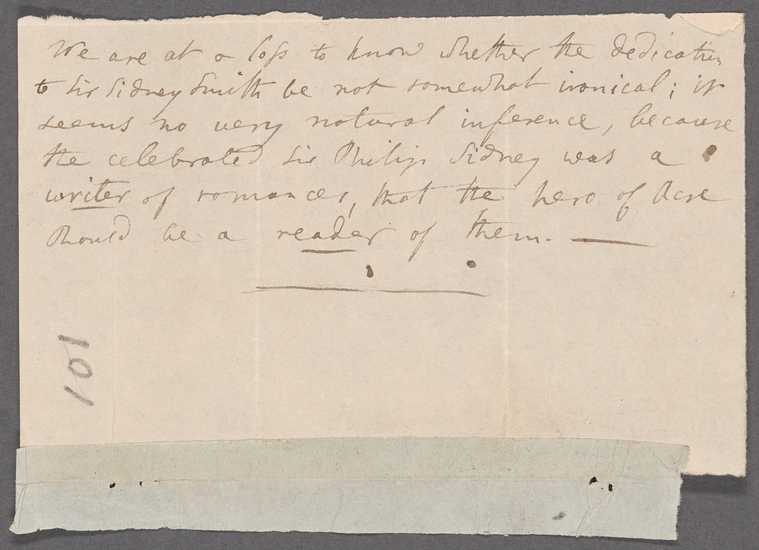 We are at a loss to know whether the dedication
to Sir Sidney Smith be not somewhat ironical; it
seems no very natural inference, because
the celebrated Sir Philip Sidney was a
writer of romances, that the hero of Acre
should be a reader of them. —
101